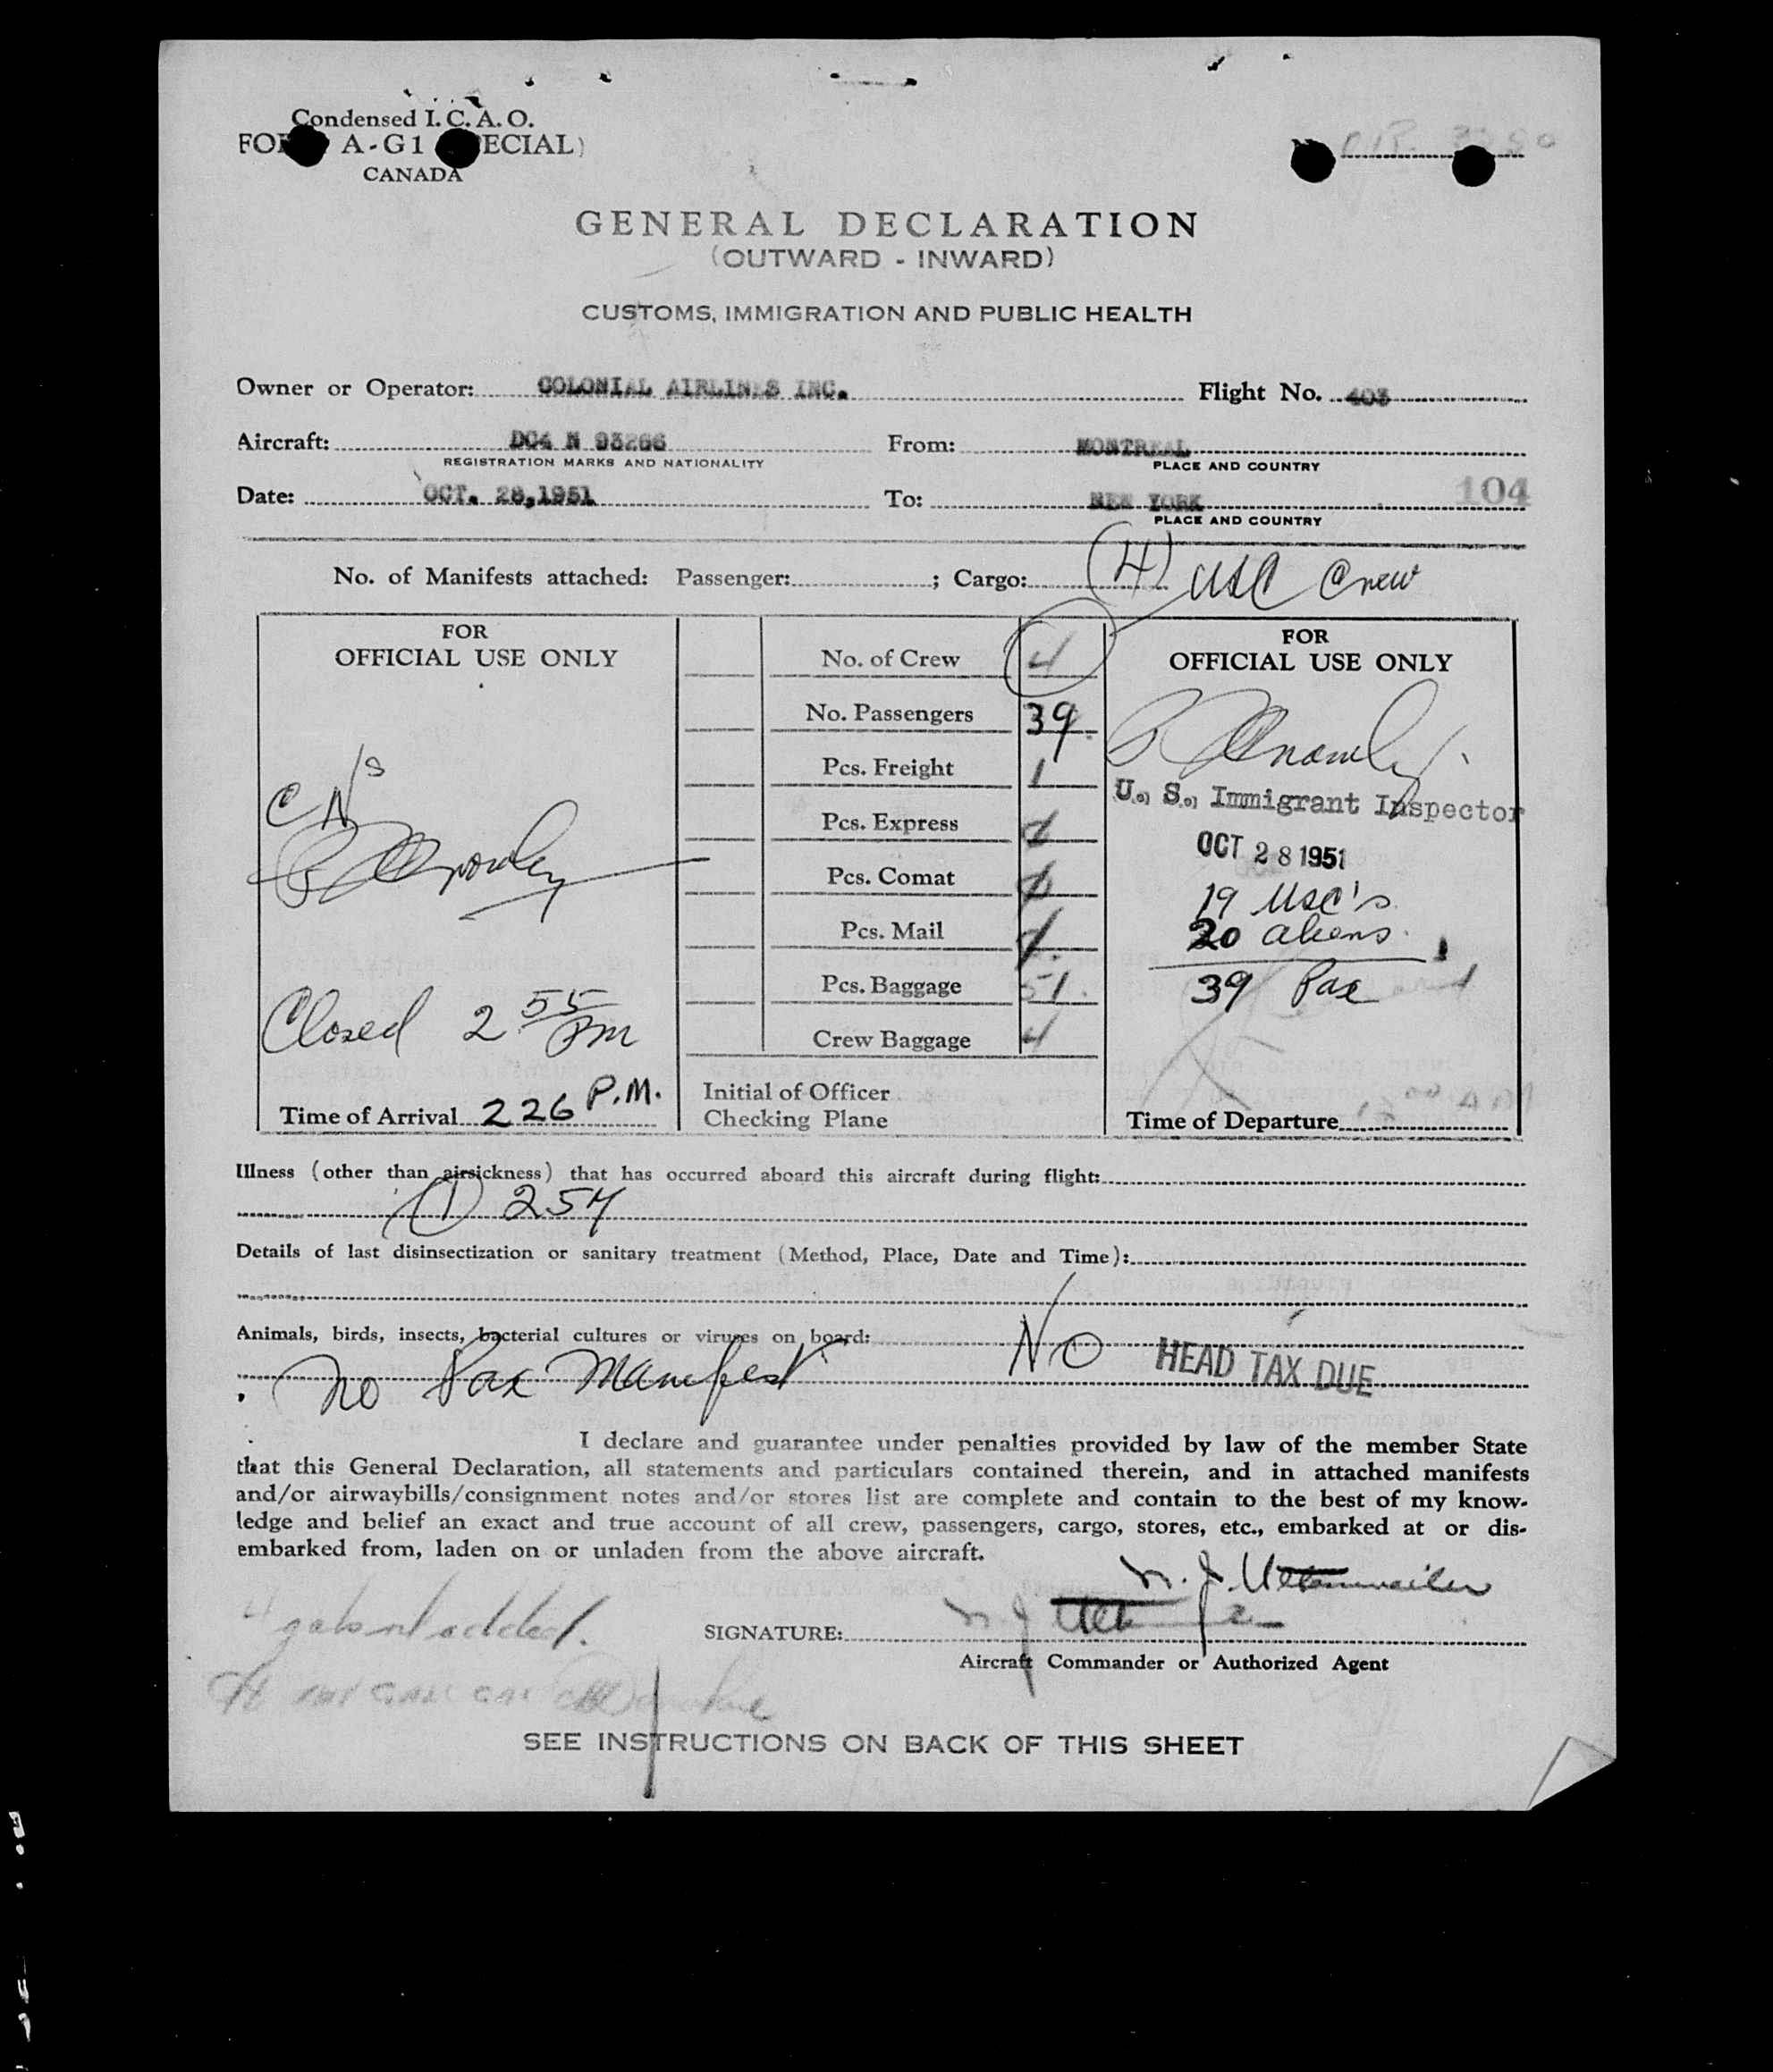 Condensed I. C. A. O.
A-G1 ECIAL)
CANADA
GENERAL DECLARATION
(OUTWARD - INWARD)
CUSTOMS, IMMIGRATION AND PUBLIC HEALTH
Owner or Operator: COLONIAL AIRLINES INC. Flight No. 403
Aircraft: DC4 N 93266 From: MONTREAL
REGISTRATION MARKS AND NATIONALITY PLACE AND COUNTRY
Date: OCT. 28,1951 To: NEW YORK 104
PLACE AND COUNTRY
No. of Manifests attached: Passenger: ; Cargo: (4) USC Crew
FOR
OFFICIAL USE ONLY
Closed 2 55 Pm
Time of Arrival 2 26 P.M.
No. of Crew 4
No. Passengers 39
Pcs. Freight 1
Pcs. Express
Pcs. Comat
Pcs. Mail
Pcs. Baggage 51
Crew Baggage 4
Initial of Officer
Checking Plane
FOR
OFFICIAL USE ONLY
U. S. Immigrant Inspector
OCT 28 1951
19 USC's
20 aliens
39 Pax
Time of Departure
Illness (other than airsickness) that has occurred aboard this aircraft during flight:
(1) 257
Details of last disinsectization or sanitary treatment (Method, Place, Date and Time):
Animals, birds, insects, bacterial cultures or viruses on board:
No Pax Manifest NO HEAD TAX DUE
I declare and guarantee under penalties provided by law of the member State
that this General Declaration, all statements and particulars contained therein, and in attached manifests
and/or airwaybills/consignment notes and/or stores list are complete and contain to the best of my know-
ledge and belief an exact and true account of all crew, passengers, cargo, stores, etc., embarked at or dis-
embarked from, laden on or unladen from the above aircraft.
SIGNATURE:
Aircraft Commander or Authorized Agent
SEE INSTRUCTIONS ON BACK OF THIS SHEET